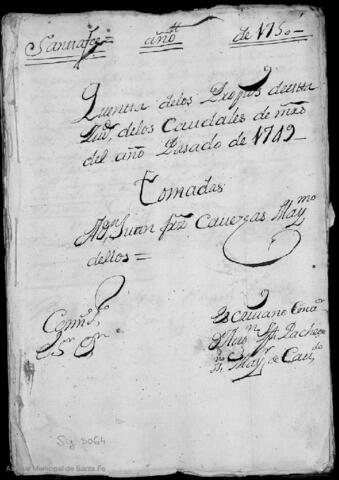 Santafee= año de 1750
Quenta delos Propios desta
Ciud, delos Caudales de mrs
del año Pasado de 1749
Tomadas
A Dn Juan frn Cavezas Maymo
dellos=
Escrivano
Pacheco
Mayr de Caudo
Sig 5064
Archivo Municipal de Santa Fe